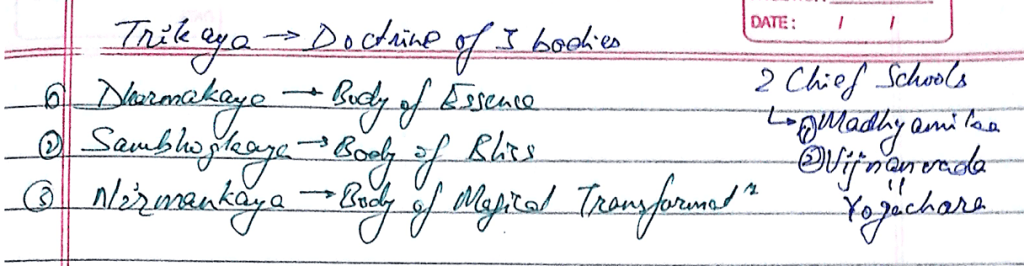 DATE: / /
Trikaya → Doctrine of 3 bodies
① Dharmakaya → Body of Essence
② Sambhogkaya → Body of Bliss
③ Nirmankaya → Body of Magical Transformatⁿ
2 Chief Schools
↳ ① Madhyamikaa
② Vijnanvada
=
Yogachara